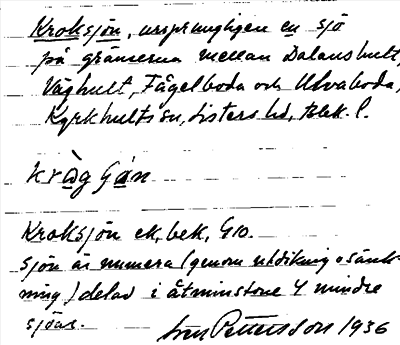 Kroksjön, ursprungligen en sjö
på gränserna mellan Dalanshult,
Våghult, Fågelboda och Ulvaboda,
Kyrkhults sn, Listers hd, Blek. l.
Kroksjön ek. bek. G10.
Sjön är numera (genom utdikning o sänk-
ning) delad i åtminstone 4 mindre
sjöar.
Sven Pettersson 1936